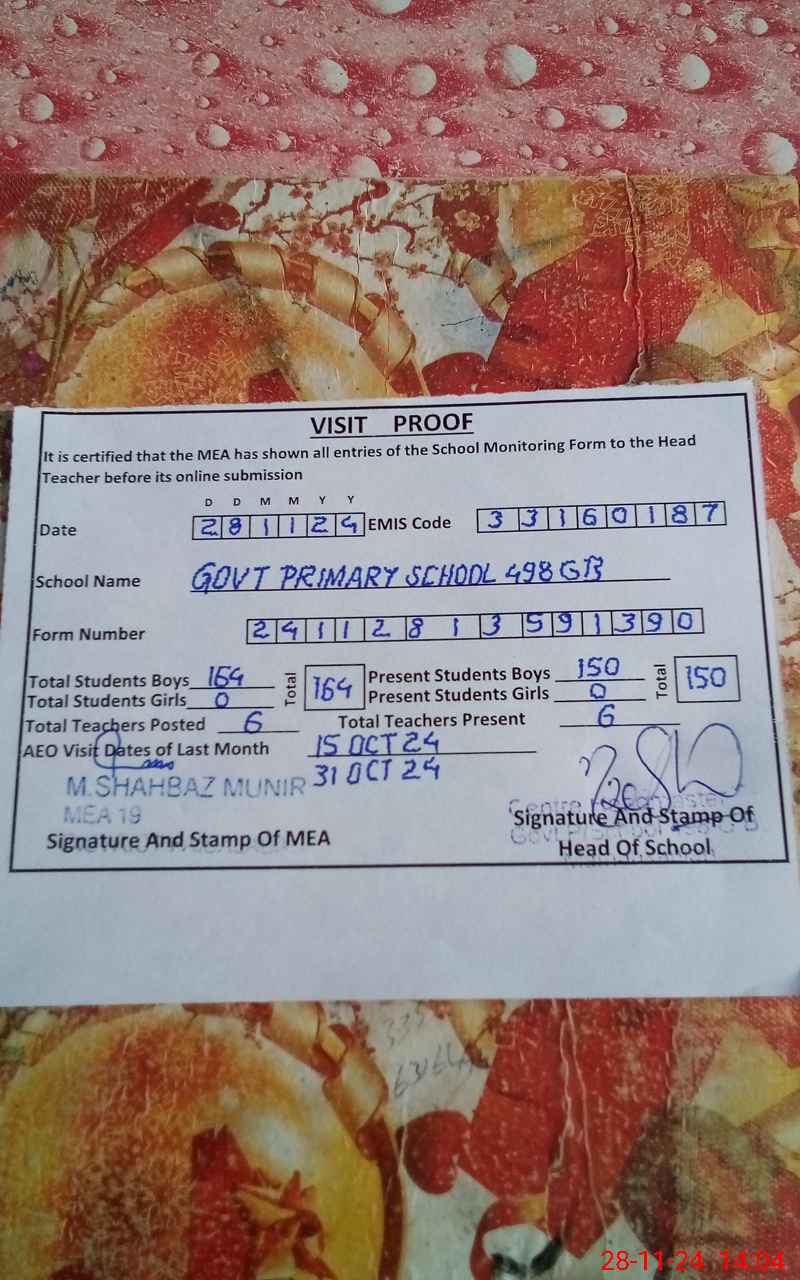 VISIT PROOF
It is certified that the MEA has shown all entries of the School Monitoring Form to the Head
Teacher before its online submission
D D M M Y Y
Date 281124 EMIS Code 33160187
School Name GOVT PRIMARY SCHOOL 498 GB
Form Number 24112813591390
Total Students Boys 164 Total 164 Present Students Boys 150 Total 150
Total Students Girls 0 Present Students Girls 0
Total Teachers Posted 6 Total Teachers Present 6
AEO Visit Dates of Last Month 15 OCT 24
31 OCT 24
M.SHAHBAZ MUNIR
MEA 19
Signature And Stamp Of MEA
Signature And Stamp Of
Head Of School
28-11-24 14:04